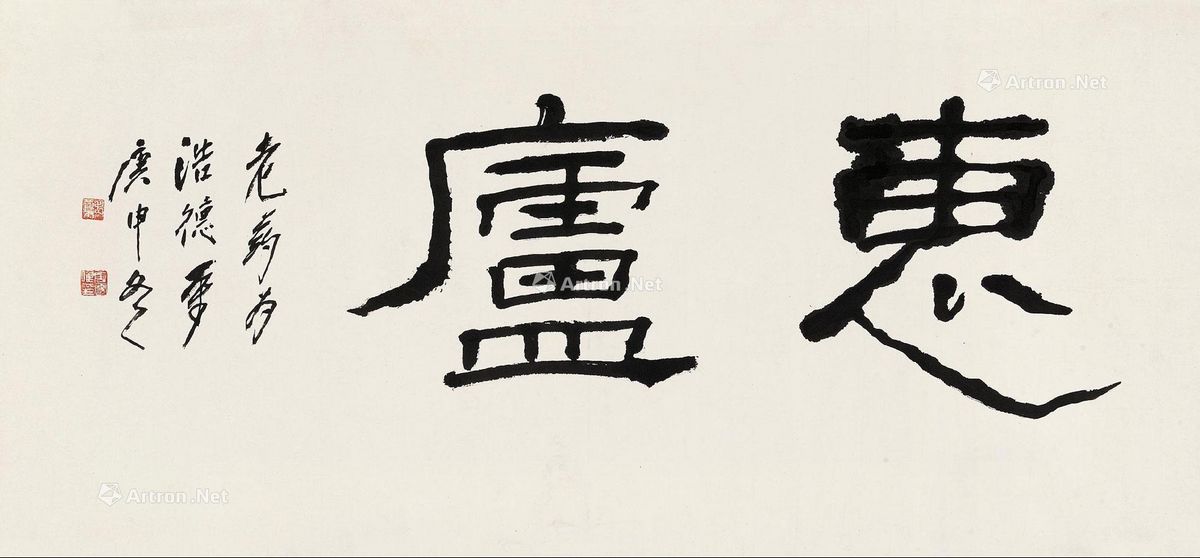 惠廬
老药为
浩德
庚申冬
Artron.Net
Artron.Net
Artron.Net